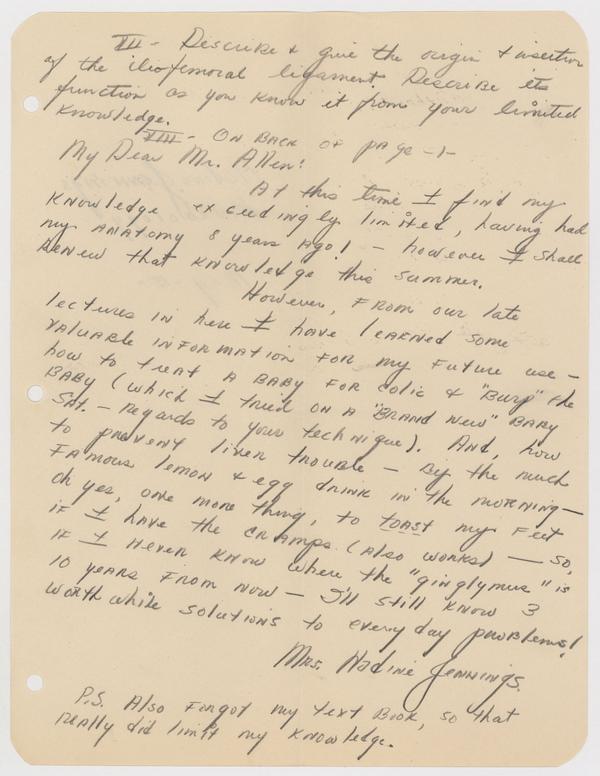 VII - Describe & give the origin & insertion
of the iliofemoral ligament. Describe its
function as you know it from your limited
knowledge.
VIII - On back of page -1-
My Dear Mr. Allen:
At this time I find my
knowledge exceedingly limited, having had
my anatomy 8 years ago! - however I shall
renew that knowledge this summer.
However, from our late
lectures in here I have learned some
valuable information for my future use -
how to treat a baby for colic & "Burp" the
baby (which I tried on a "Brand New" baby
Sat. - regards to your technique). And, how
to prevent liver trouble - by the much
famous lemon & egg drink in the morning -
oh yes, one more thing, to toast my feet
if I have the cramps (also works) - So,
if I never know where the "ginglymus" is
10 years from now - I'll still know 3
worth while solutions to everyday problems!
Mrs. Nadine Jennings.
P.S. Also forgot my text book, so that
really did limit my knowledge.